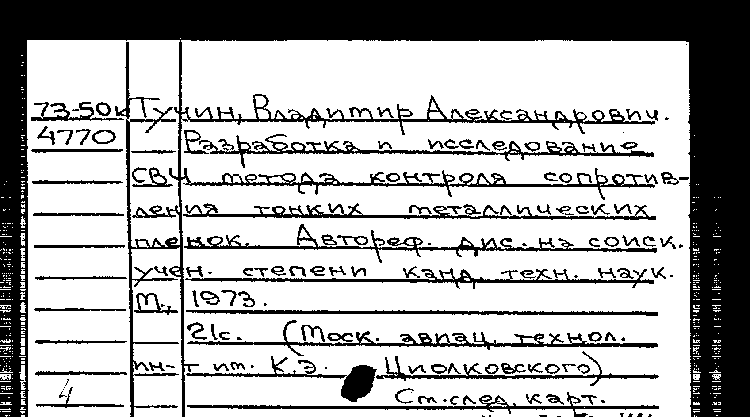 73-50к Тучин, Владимир Александрович.
4770 Разработка и исследование
СВЧ метода контроля сопротив-
ления тонких металлических
пленок. Автореф. дис. на соиск.
учен. степени канд. техн. наук.
М., 1973.
21с. (Моск. авиац. технол.
ин-т им. К.Э. Циолковского).
4 См. след. карт.